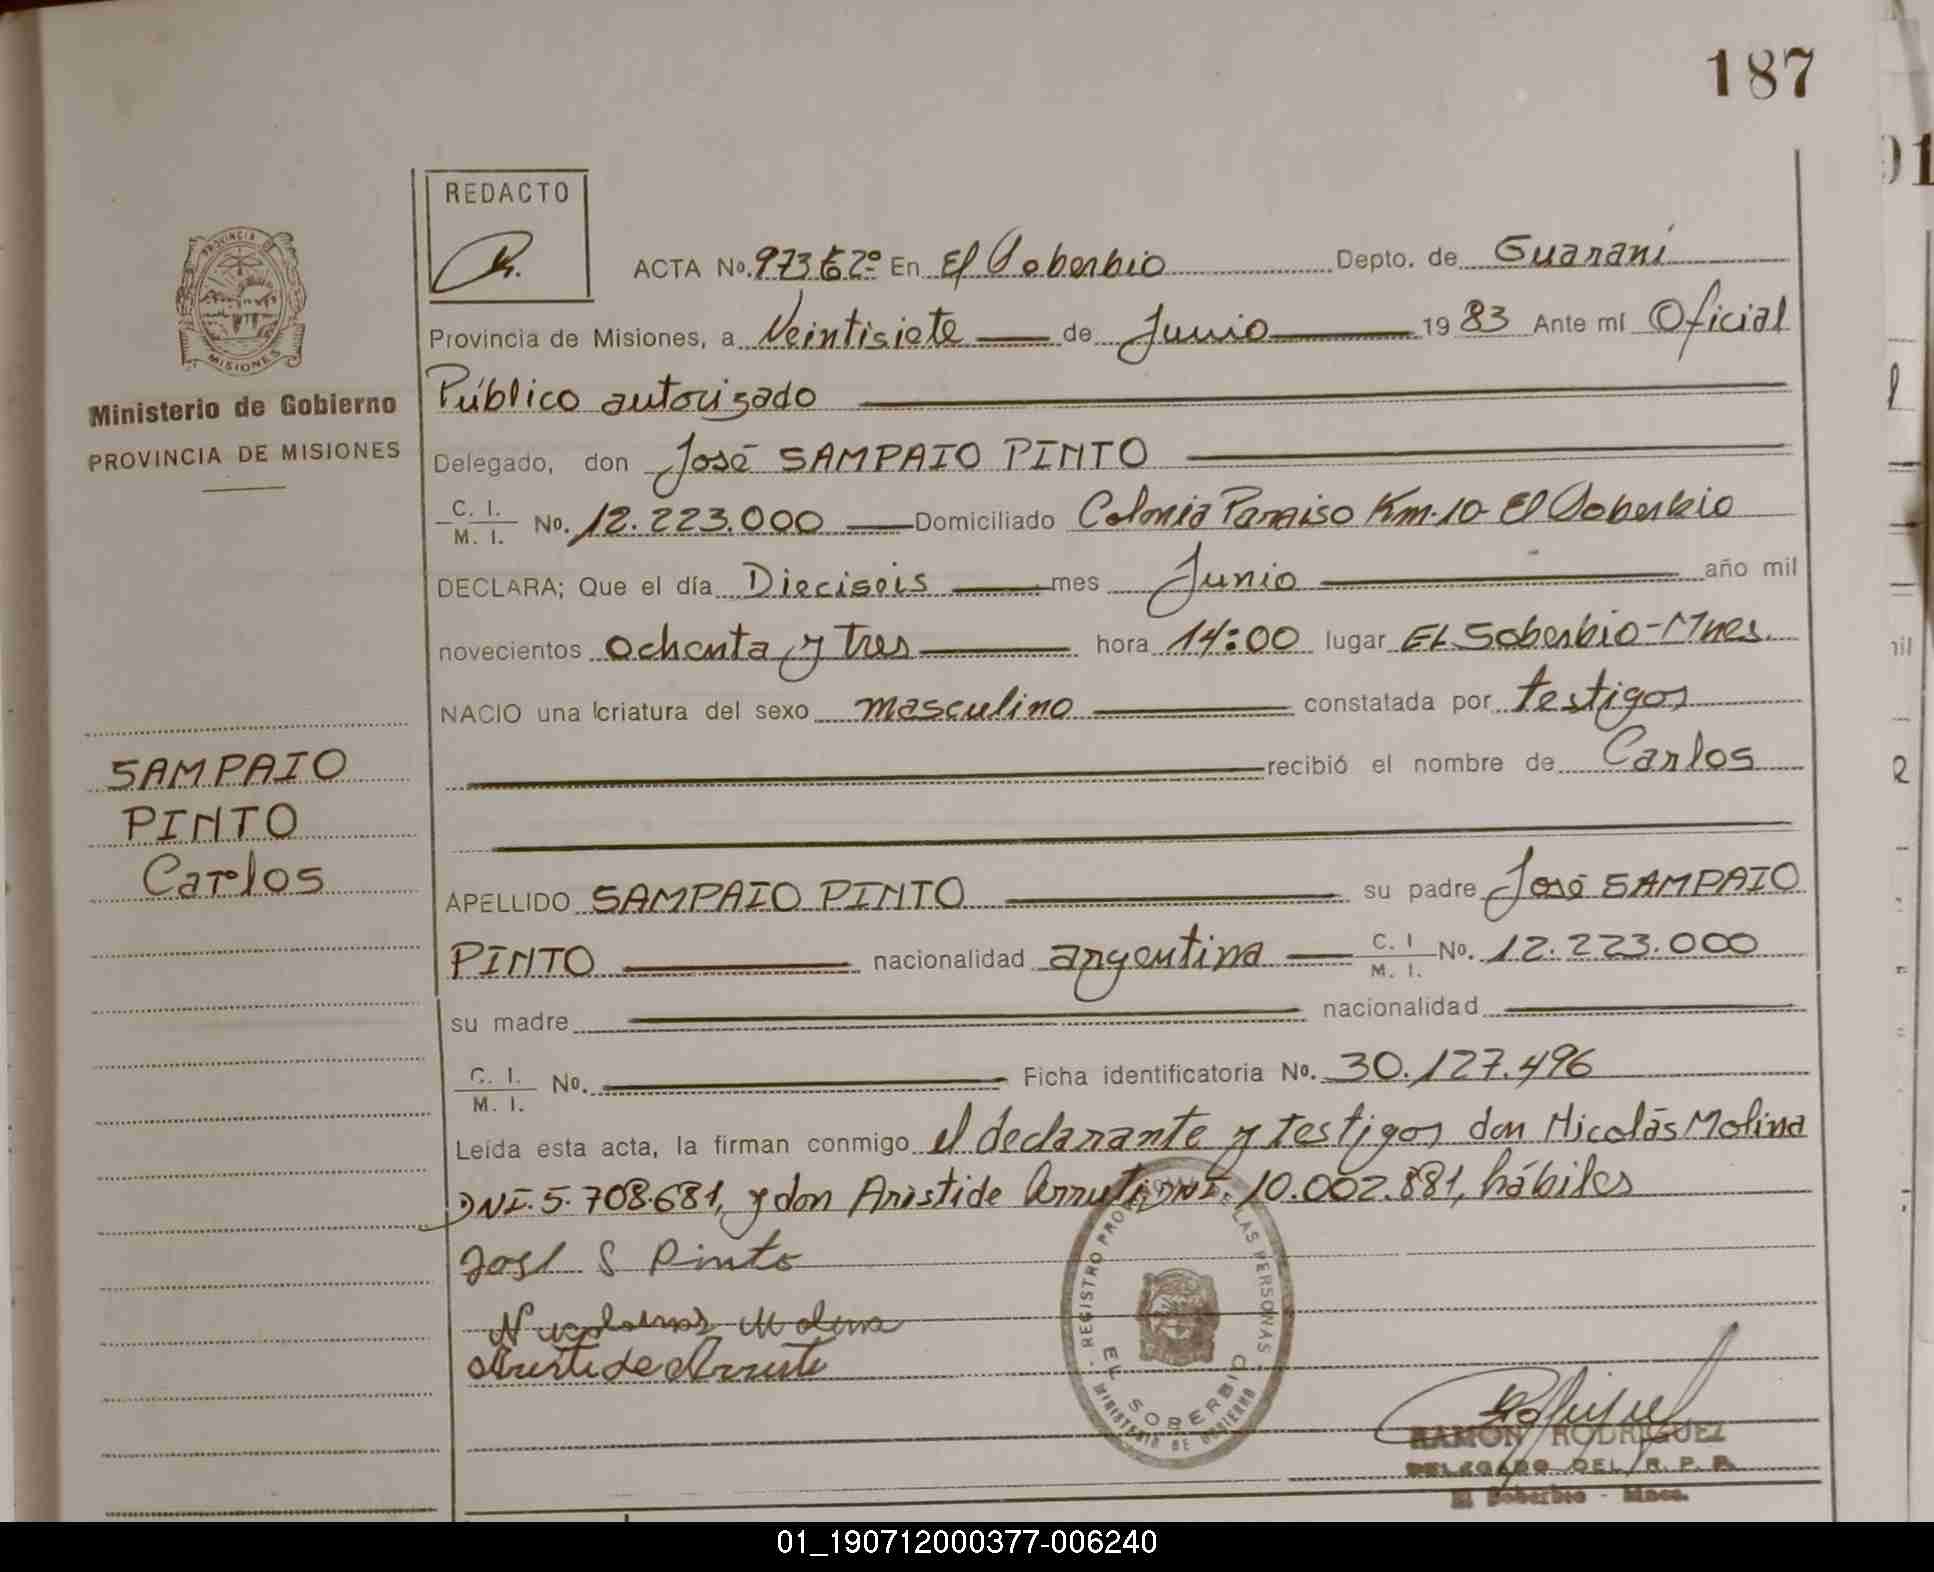 187
REDACTO
PROVINCIA DE
MISIONES
Ministerio de Gobierno
PROVINCIA DE MISIONES
SAMPAIO
PINTO
Carlos
ACTA No. 973 t 2º En El Soberbio Depto. de Guaraní
Provincia de Misiones, a Veintisiete de Junio 1983 Ante mí Oficial
Público autorizado
Delegado, don José SAMPAIO PINTO
C. I. / M. I. No. 12.223.000 Domiciliado Colonia Paraiso Km. 10 El Soberbio
DECLARA; Que el día Dieciseis mes Junio año mil
novecientos ochenta y tres hora 14:00 lugar EL Soberbio-Mnes.
NACIO una criatura del sexo masculino constatada por testigos
recibió el nombre de Carlos
APELLIDO SAMPAIO PINTO su padre José SAMPAIO
PINTO nacionalidad argentina C. I / M. I. No. 12.223.000
su madre nacionalidad
C. I. / M. I. No. Ficha identificatoria No. 30.127.496
Leída esta acta, la firman conmigo el declarante y testigos don Nicolás Molina
DNI. 5.708.681, y don Aristide Arruti DNI. 10.002.881, hábiles
José S Pinto
Molina
Aristide Arruti
REGISTRO LAS PERSONAS
EL SOBERBIO
MINISTERIO DE GOBIERNO
RAMON RODRIGUEZ
DELEGADO DEL R. P. P.
El Soberbio - Mnes.
01_190712000377-006240